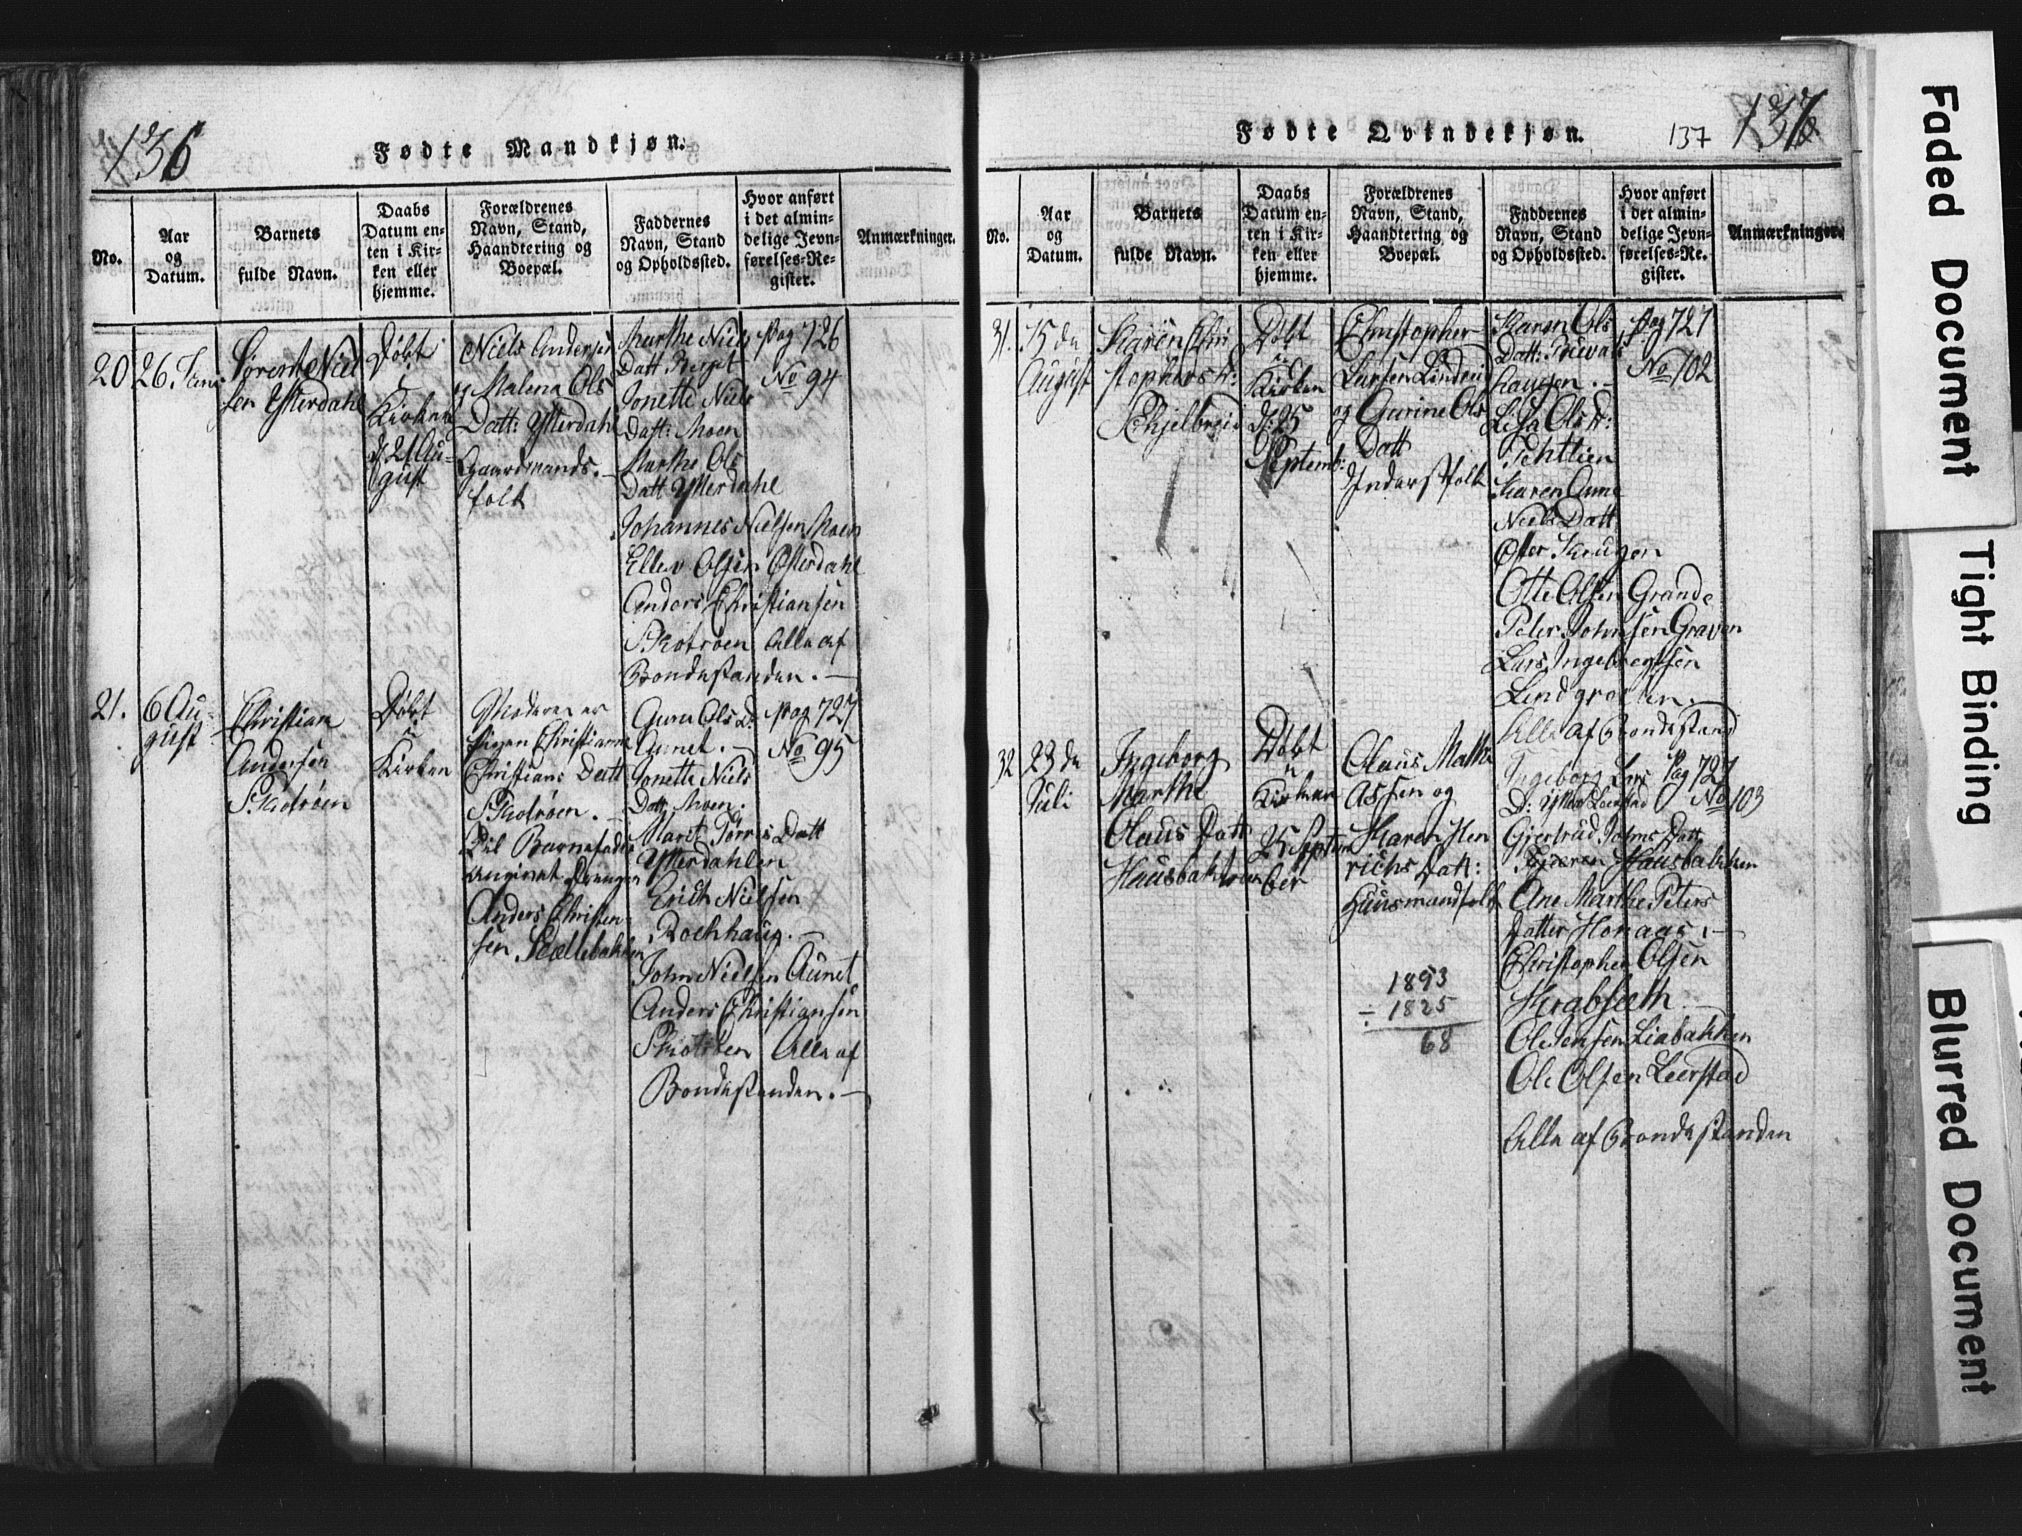 136
Fødte Mandkjøn.
No.
Aar
og
Datum.
Barnets
fulde Navn.
Daabs
Datum en-
ten i Kir-
ken eller
hjemme.
Forældrenes
Navn, Stand,
Haandtering og
Boepæl.
Faddernes
Navn, Stand
og Opholdssted.
Hvor anført
i det almin-
delige Jevn-
førelses-Re-
gister.
Anmærkninger.
20
26. Juni
Sørent Niel
sen Ytterdahl
Døbt
i
Kirken
d. 21 Au-
gust
Niels Andersen
og Malena Ols
Datt: Ytterdahl
Gaardmands-
folk
Marthe Niels
Datt Berget
Jonette Niels
Datt: Moen
Marthe Ols
Datt Ytterdahl
Johannes Nielsen Moen
Ellev Olsen Ytterdahl
Anders Christiansen
Skotrøen Alle af
Bondestanden.
Pag 726
No 94
21.
6 Au-
gust
Christian
Andersen
Skotrøen
Døbt
i
Kirken
Moderen er
Pigen Christianna
Christians Datt
Skotrøen.
Til Barnefader
angivet Drengen
Anders Christen-
sen
Guru Ols D:
Aunet.
Jonette Niels
Datt Moen.
Marit Torris Datt
Ytterdahlen
Erich Nielsen
Rochhaug.
John Nielsen Aunet
Anders Christiansen
Skotrøen Alle af
Bondestanden.
Pag 727
No 95
Fødte Qvindekjøn.
137
137
No.
Aar
og
Datum.
Barnets
fulde Navn.
Daabs
Datum en-
ten i Kir-
ken eller
hjemme.
Forældrenes
Navn, Stand,
Haandtering og
Boepæl.
Faddernes
Navn, Stand
og Opholdssted.
Hvor anført
i det almin-
delige Jevn-
førelses-Re-
gister.
Anmærkninger.
31.
15 de
August
Karen Chri
stophers D:
Skjelbreid
Døbt
i
Kirken
d: 25
Septemb:
Christopher
Larsen Lindseid
og Gurine Ols
Datt
Inderstfolk
Karen Ols
Datt:
haugen.
Lisa Ols D:
Karen Anna
Niels Datt
Otter Haugen
Otte Olsen Grande
Peter Johnsen Graven
Lars Ingebregtsen
Lindgrotten.
Alle af Bondestand
Pag 727
No 102
32
23 de
Juli
Ingeborg
Marthe
Olaus Datt
Hausbakken
Døbt
i
Kirken
25 Septem
ber
Olaus Mathi
assen og
Karen Hen
richs Datt:
Huusmandsfolk
Ingeborg Lars
D: Ytter Leerstad
Gjertrud Johns Datt
Hausbakken
Ane Marthe Peters
Datter Honaas.
Christopher Olsen
Krabseth
Ole Jensen Liabakken
Ole Olsen Leerstad
Alle af Bondestanden
Pag 727
No 103
1893
÷ 1825
68
Faded Document
Tight Binding
Blurred Document